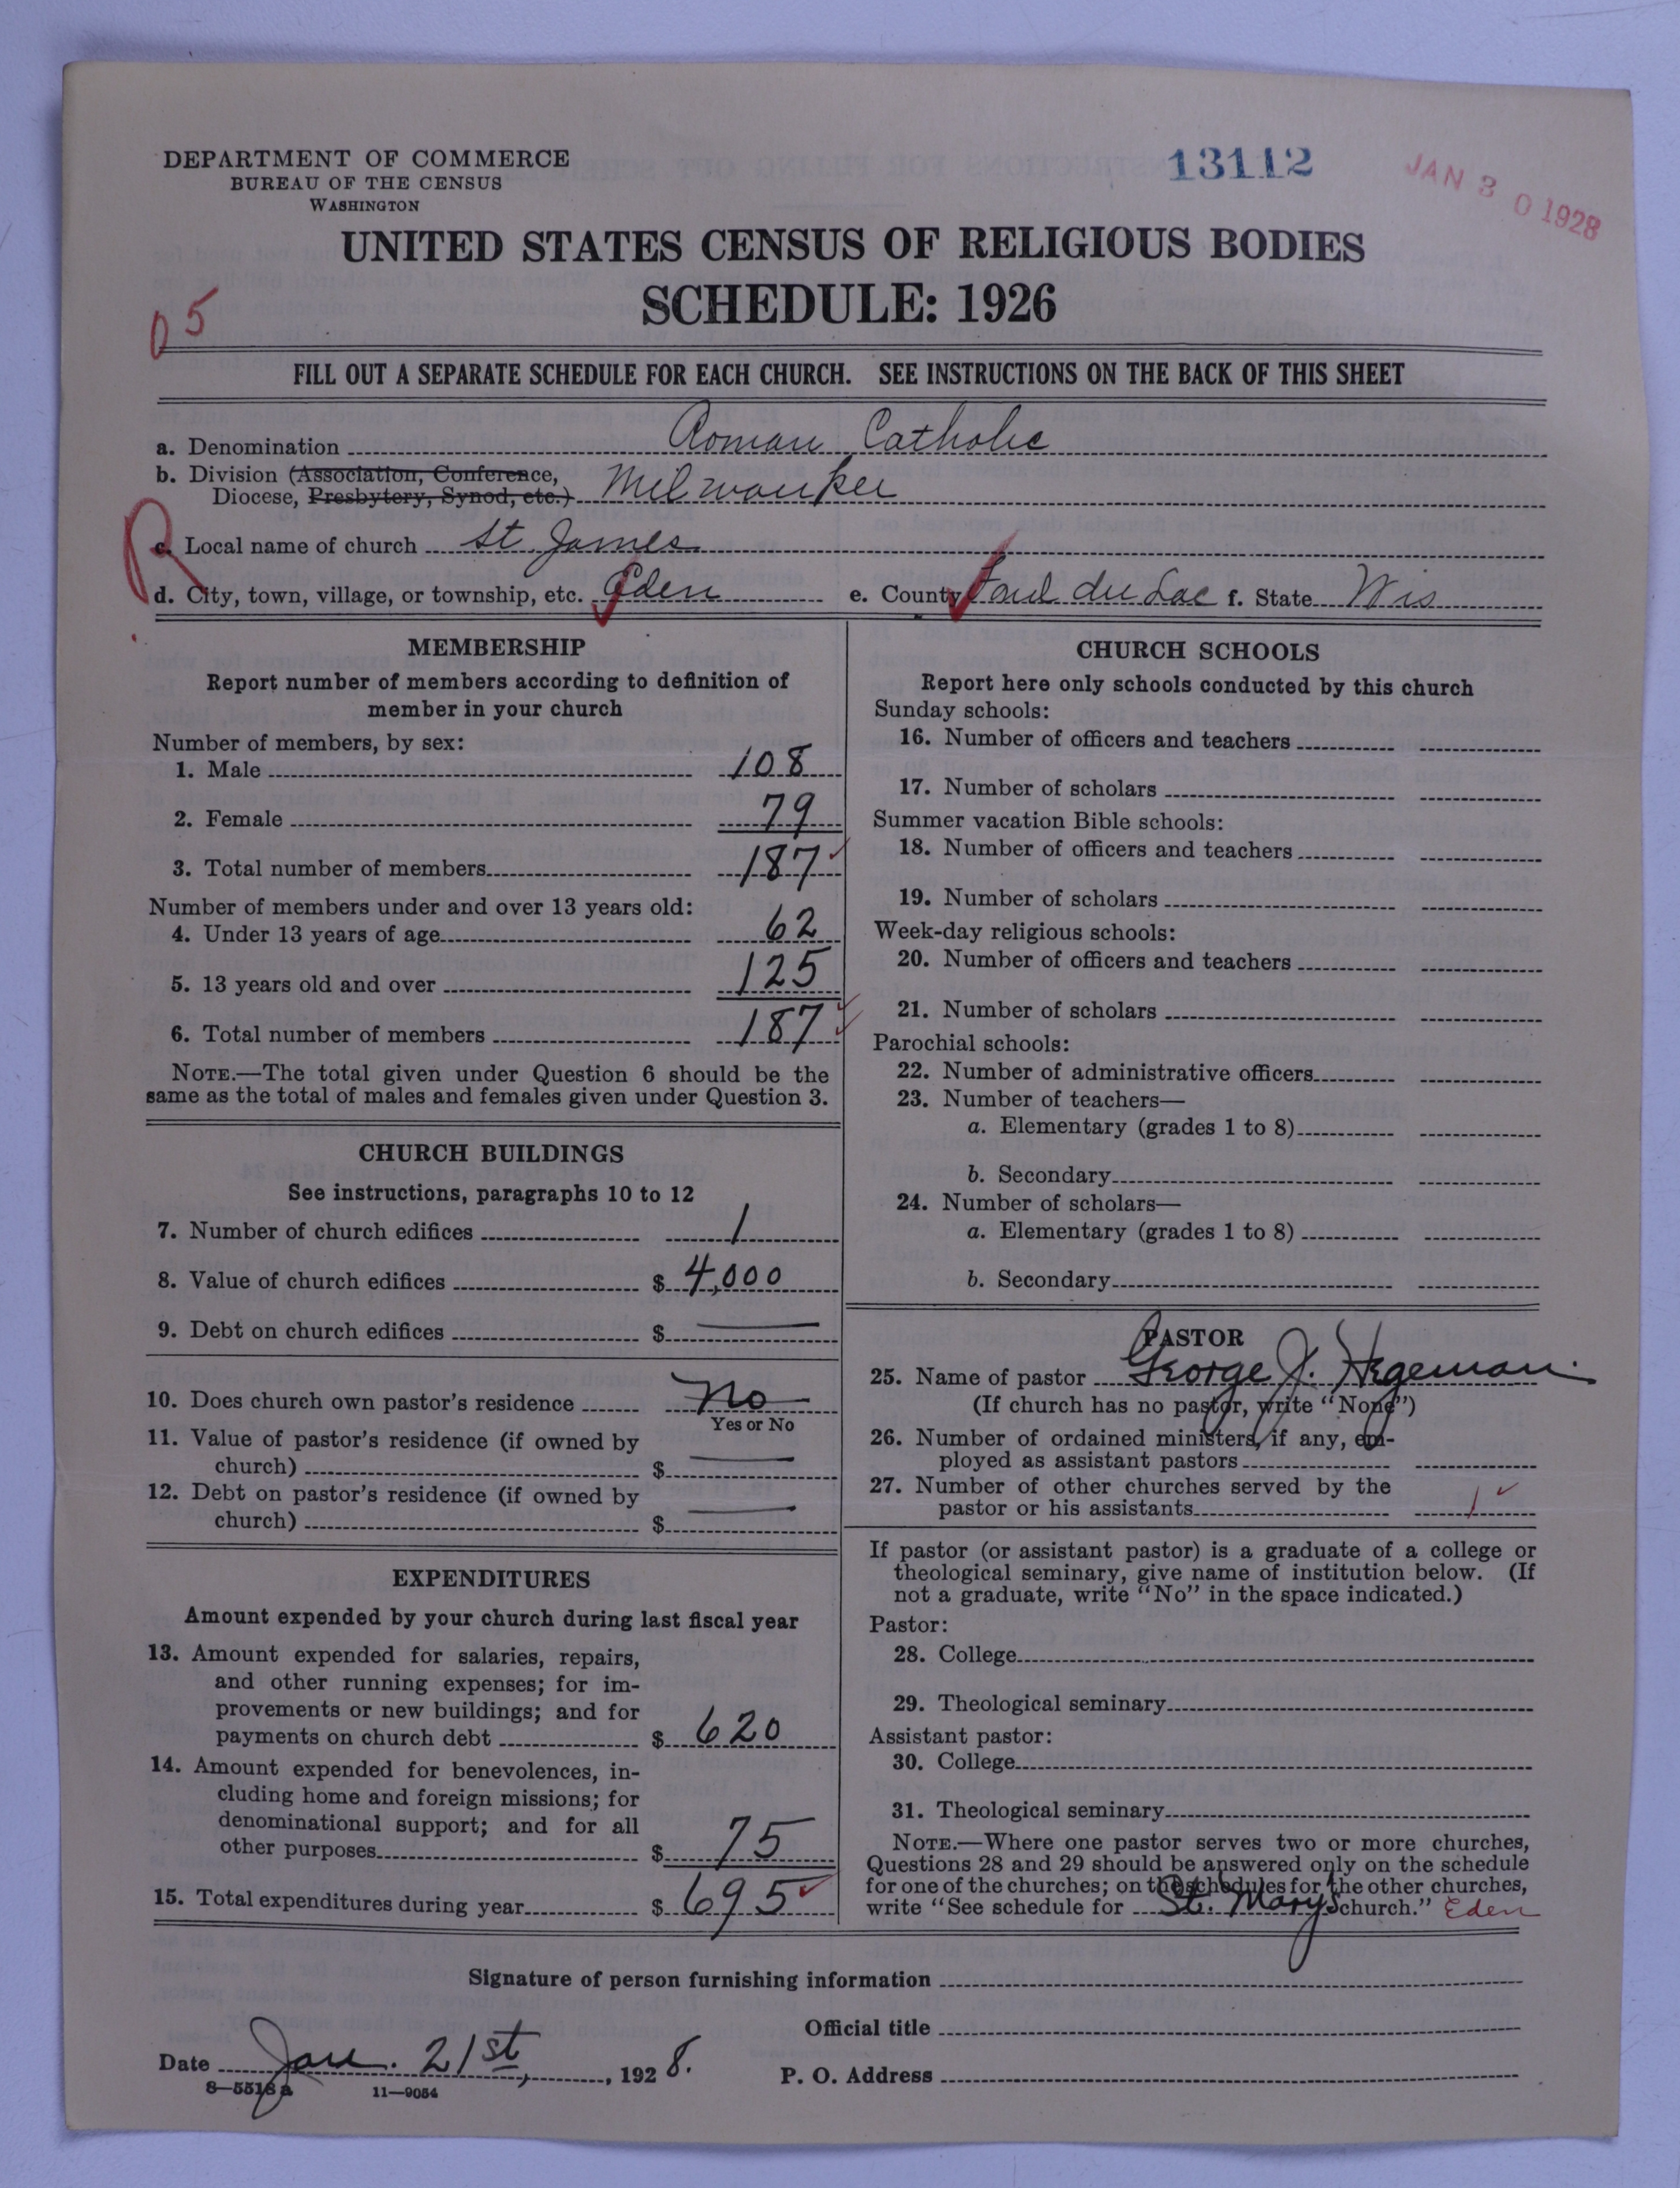 DEPARTMENT OF COMMERCE
BUREAU OF THE CENSUS
WASHINGTON
13112
JAN 30 1928
UNITED STATES CENSUS OF RELIGIOUS BODIES
SCHEDULE: 1926
05
FILL OUT A SEPARATE SCHEDULE FOR EACH CHURCH. SEE INSTRUCTIONS ON THE BACK OF THIS SHEET
a. Denomination Roman Catholic
b. Division (Association, Conference,
Diocese, Presbytery, Synod, etc.) Milwaukee
R
c. Local name of church St James
d. City, town, village, or township, etc. Eden e. County Fond du Lac f. State Wis
MEMBERSHIP
Report number of members according to definition of
member in your church
Number of members, by sex:
1. Male 108
2. Female 79
3. Total number of members 187
Number of members under and over 13 years old:
4. Under 13 years of age 62
5. 13 years old and over 125
6. Total number of members 187
NOTE.—The total given under Question 6 should be the
same as the total of males and females given under Question 3.
CHURCH BUILDINGS
See instructions, paragraphs 10 to 12
7. Number of church edifices 1
8. Value of church edifices $ 4,000
9. Debt on church edifices $ —
10. Does church own pastor's residence No
Yes or No
11. Value of pastor's residence (if owned by
church) $ —
12. Debt on pastor's residence (if owned by
church) $ —
EXPENDITURES
Amount expended by your church during last fiscal year
13. Amount expended for salaries, repairs,
and other running expenses; for im-
provements or new buildings; and for
payments on church debt $ 620
14. Amount expended for benevolences, in-
cluding home and foreign missions; for
denominational support; and for all
other purposes $ 75
15. Total expenditures during year $ 695
CHURCH SCHOOLS
Report here only schools conducted by this church
Sunday schools:
16. Number of officers and teachers
17. Number of scholars
Summer vacation Bible schools:
18. Number of officers and teachers
19. Number of scholars
Week-day religious schools:
20. Number of officers and teachers
21. Number of scholars
Parochial schools:
22. Number of administrative officers
23. Number of teachers—
a. Elementary (grades 1 to 8)
b. Secondary
24. Number of scholars—
a. Elementary (grades 1 to 8)
b. Secondary
PASTOR
25. Name of pastor George J. Hegeman.
(If church has no pastor, write "None")
26. Number of ordained ministers, if any, em-
ployed as assistant pastors
27. Number of other churches served by the
pastor or his assistants 1
If pastor (or assistant pastor) is a graduate of a college or
theological seminary, give name of institution below. (If
not a graduate, write "No" in the space indicated.)
Pastor:
28. College
29. Theological seminary
Assistant pastor:
30. College
31. Theological seminary
NOTE.—Where one pastor serves two or more churches,
Questions 28 and 29 should be answered only on the schedule
for one of the churches; on the schedules for the other churches,
write "See schedule for St. Mary's church." Eden
Signature of person furnishing information
Official title
Date Jan. 21st, 1928.
P. O. Address
8—5518 a 11—9054